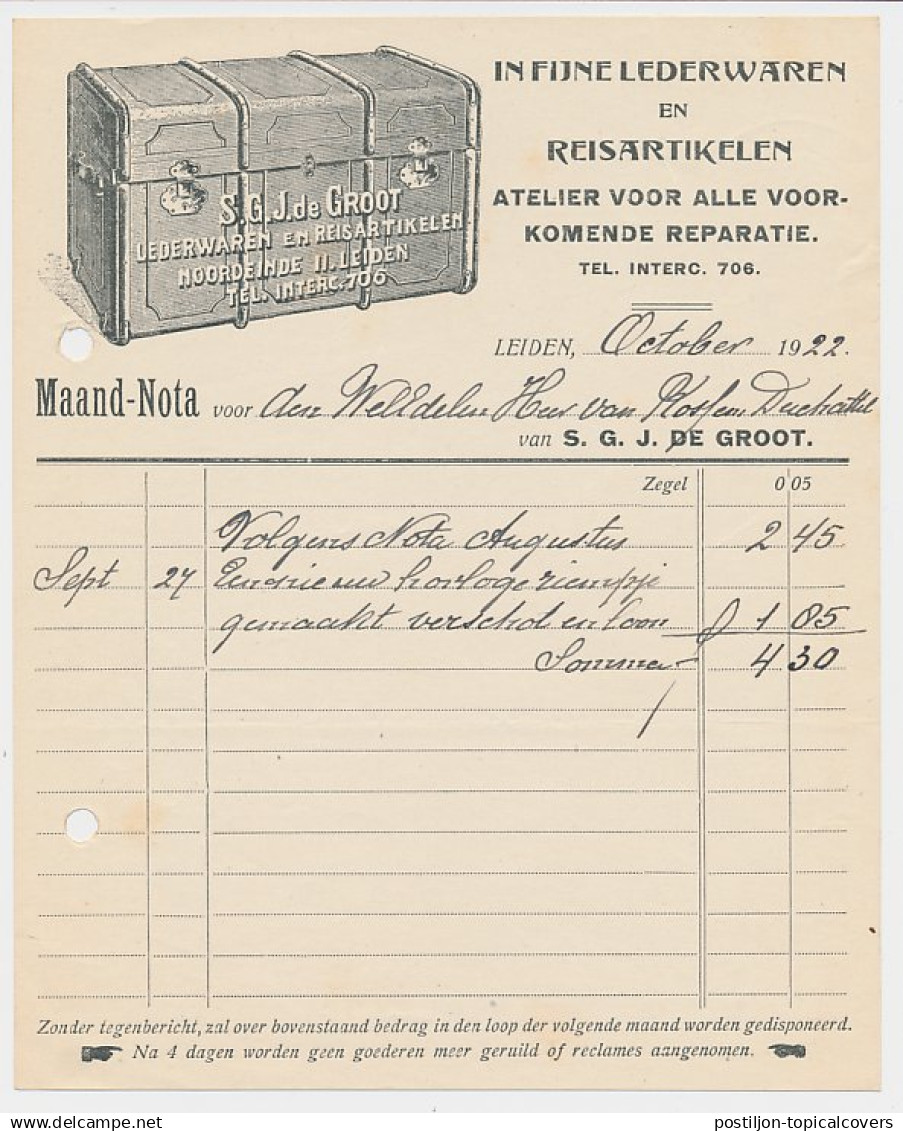 IN FIJNE LEDERWAREN
EN
REISARTIKELEN
ATELIER VOOR ALLE VOOR-
KOMENDE REPARATIE.
TEL. INTERC. 706.
S.G.J. de GROOT
LEDERWAREN EN REISARTIKELEN
NOORDEINDE 11. LEIDEN
TEL. INTERC. 706
LEIDEN, October 1922.
Maand-Nota voor den WelEdelen Heer van
van S. G. J. DE GROOT.
Zegel 0 05
Volgens Nota Augustus 2 45
Sept 27 horloge riempje
gemaakt verschot en loon 1 85
Somma 4 30
Zonder tegenbericht, zal over bovenstaand bedrag in den loop der volgende maand worden gedisponeerd.
Na 4 dagen worden geen goederen meer geruild of reclames aangenomen.
postiljon-topicalcovers